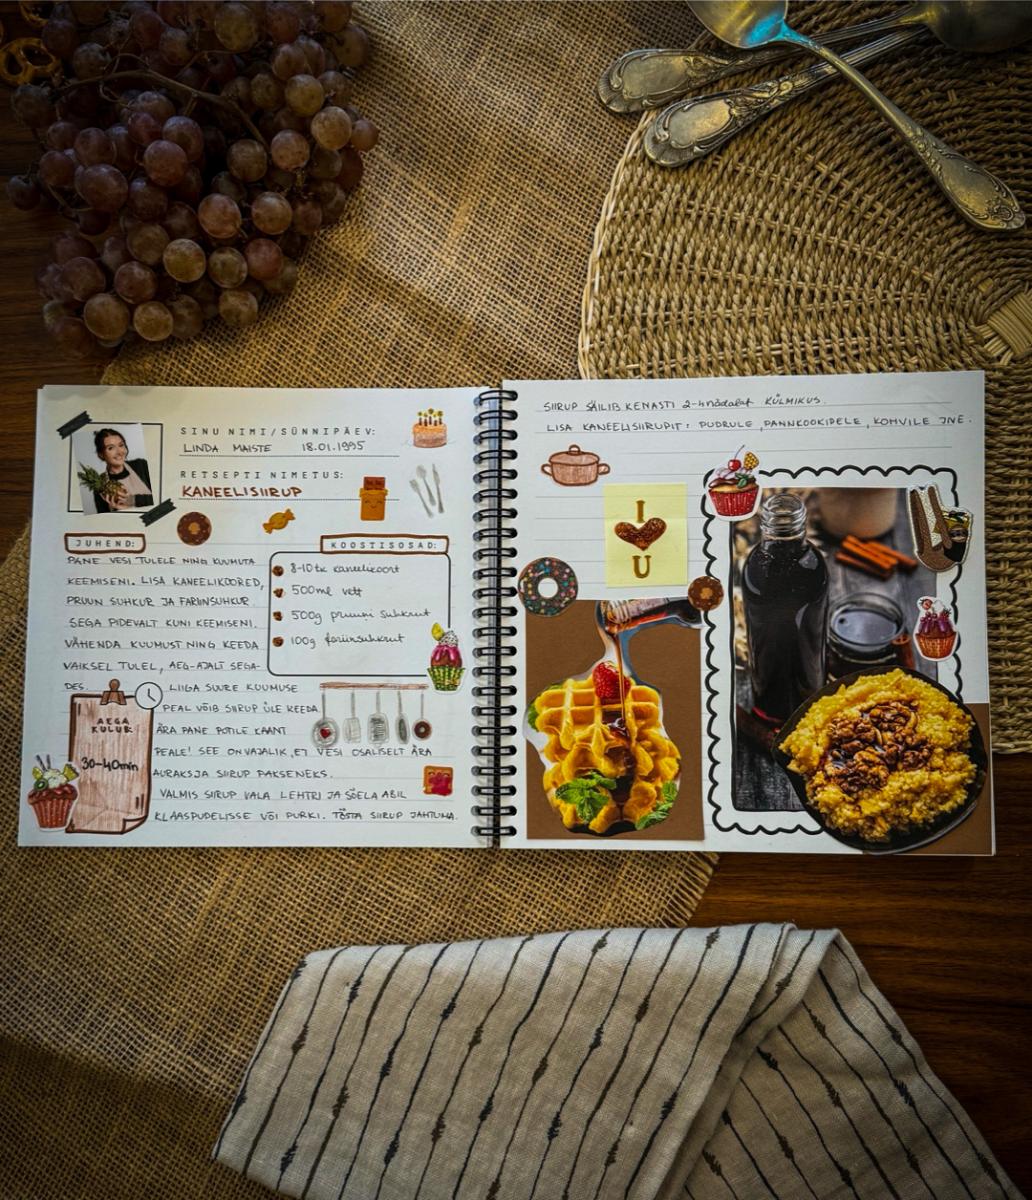 SINU NIMI/SÜNNIPÄEV:
LINDA MAISTE 18.01.1995
RETSEPTI NIMETUS:
KANEELISIIRUP
JUHEND:
PANE VESI TULELE NING KUUMUTA
KEEMISENI. LISA KANEELIKOORED,
PRUUN SUHKUR JA FARIINSUHKUR.
SEGA PIDEVALT KUNI KEEMISENI.
VÄHENDA KUUMUST NING KEEDA
VAIKSEL TULEL, AEG-AJALT SEGA-
DES. LIIGA SUURE KUUMUSE
PEAL VÕIB SIIRUP ÜLE KEEDA.
ÄRA PANE POTILE KAANT
PEALE! SEE ON VAJALIK, ET VESI OSALISELT ÄRA
AURAKS JA SIIRUP PAKSENEKS.
VALMIS SIIRUP VALA LEHTRI JA SÕELA ABIL
KLAASPUDELISSE VÕI PURKI. TÕSTA SIIRUP JAHTUMA.
KOOSTISOSAD:
8-10tk kaneelikoort
500ml vett
500g pruuni suhkrut
100g fariinsuhkrut
AEGA
KULUB:
30-40min
SIIRUP SÄILIB KENASTI 2-4 nädalat KÜLMIKUS.
LISA KANEELISIIRUPIT: PUDRULE, PANNKOOKIDELE, KOHVILE JNE.
I
U